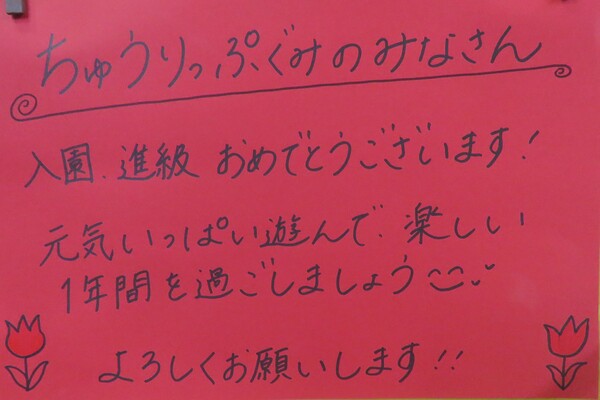 ちゅうりっぷぐみのみなさん
入園、進級 おめでとうございます!
元気いっぱい遊んで、楽しい
1年間を過ごしましょう
よろしくお願いします!!